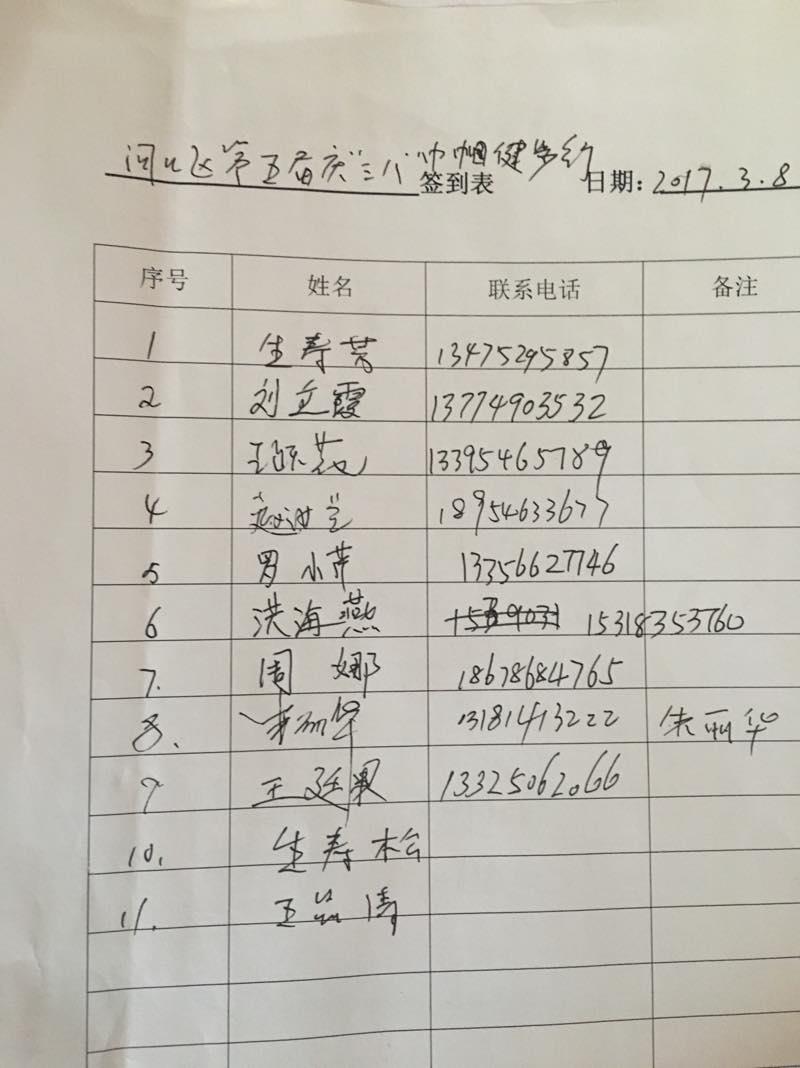 河口区"第五届庆"三八"巾帼健步行
签到表 日期：2017.3.8
序号 姓名 联系电话 备注
1 生寿芳 13475295857
2 刘立霞 13774903532
3 13395465789
4 18954633677
5 罗小萍 13356627746
6 洪海燕 15318353760
7. 周娜 18678684765
8. 朱丽华 13181413222 朱丽华
9 王廷果 13325062066
10. 生寿松
11. 王 涛